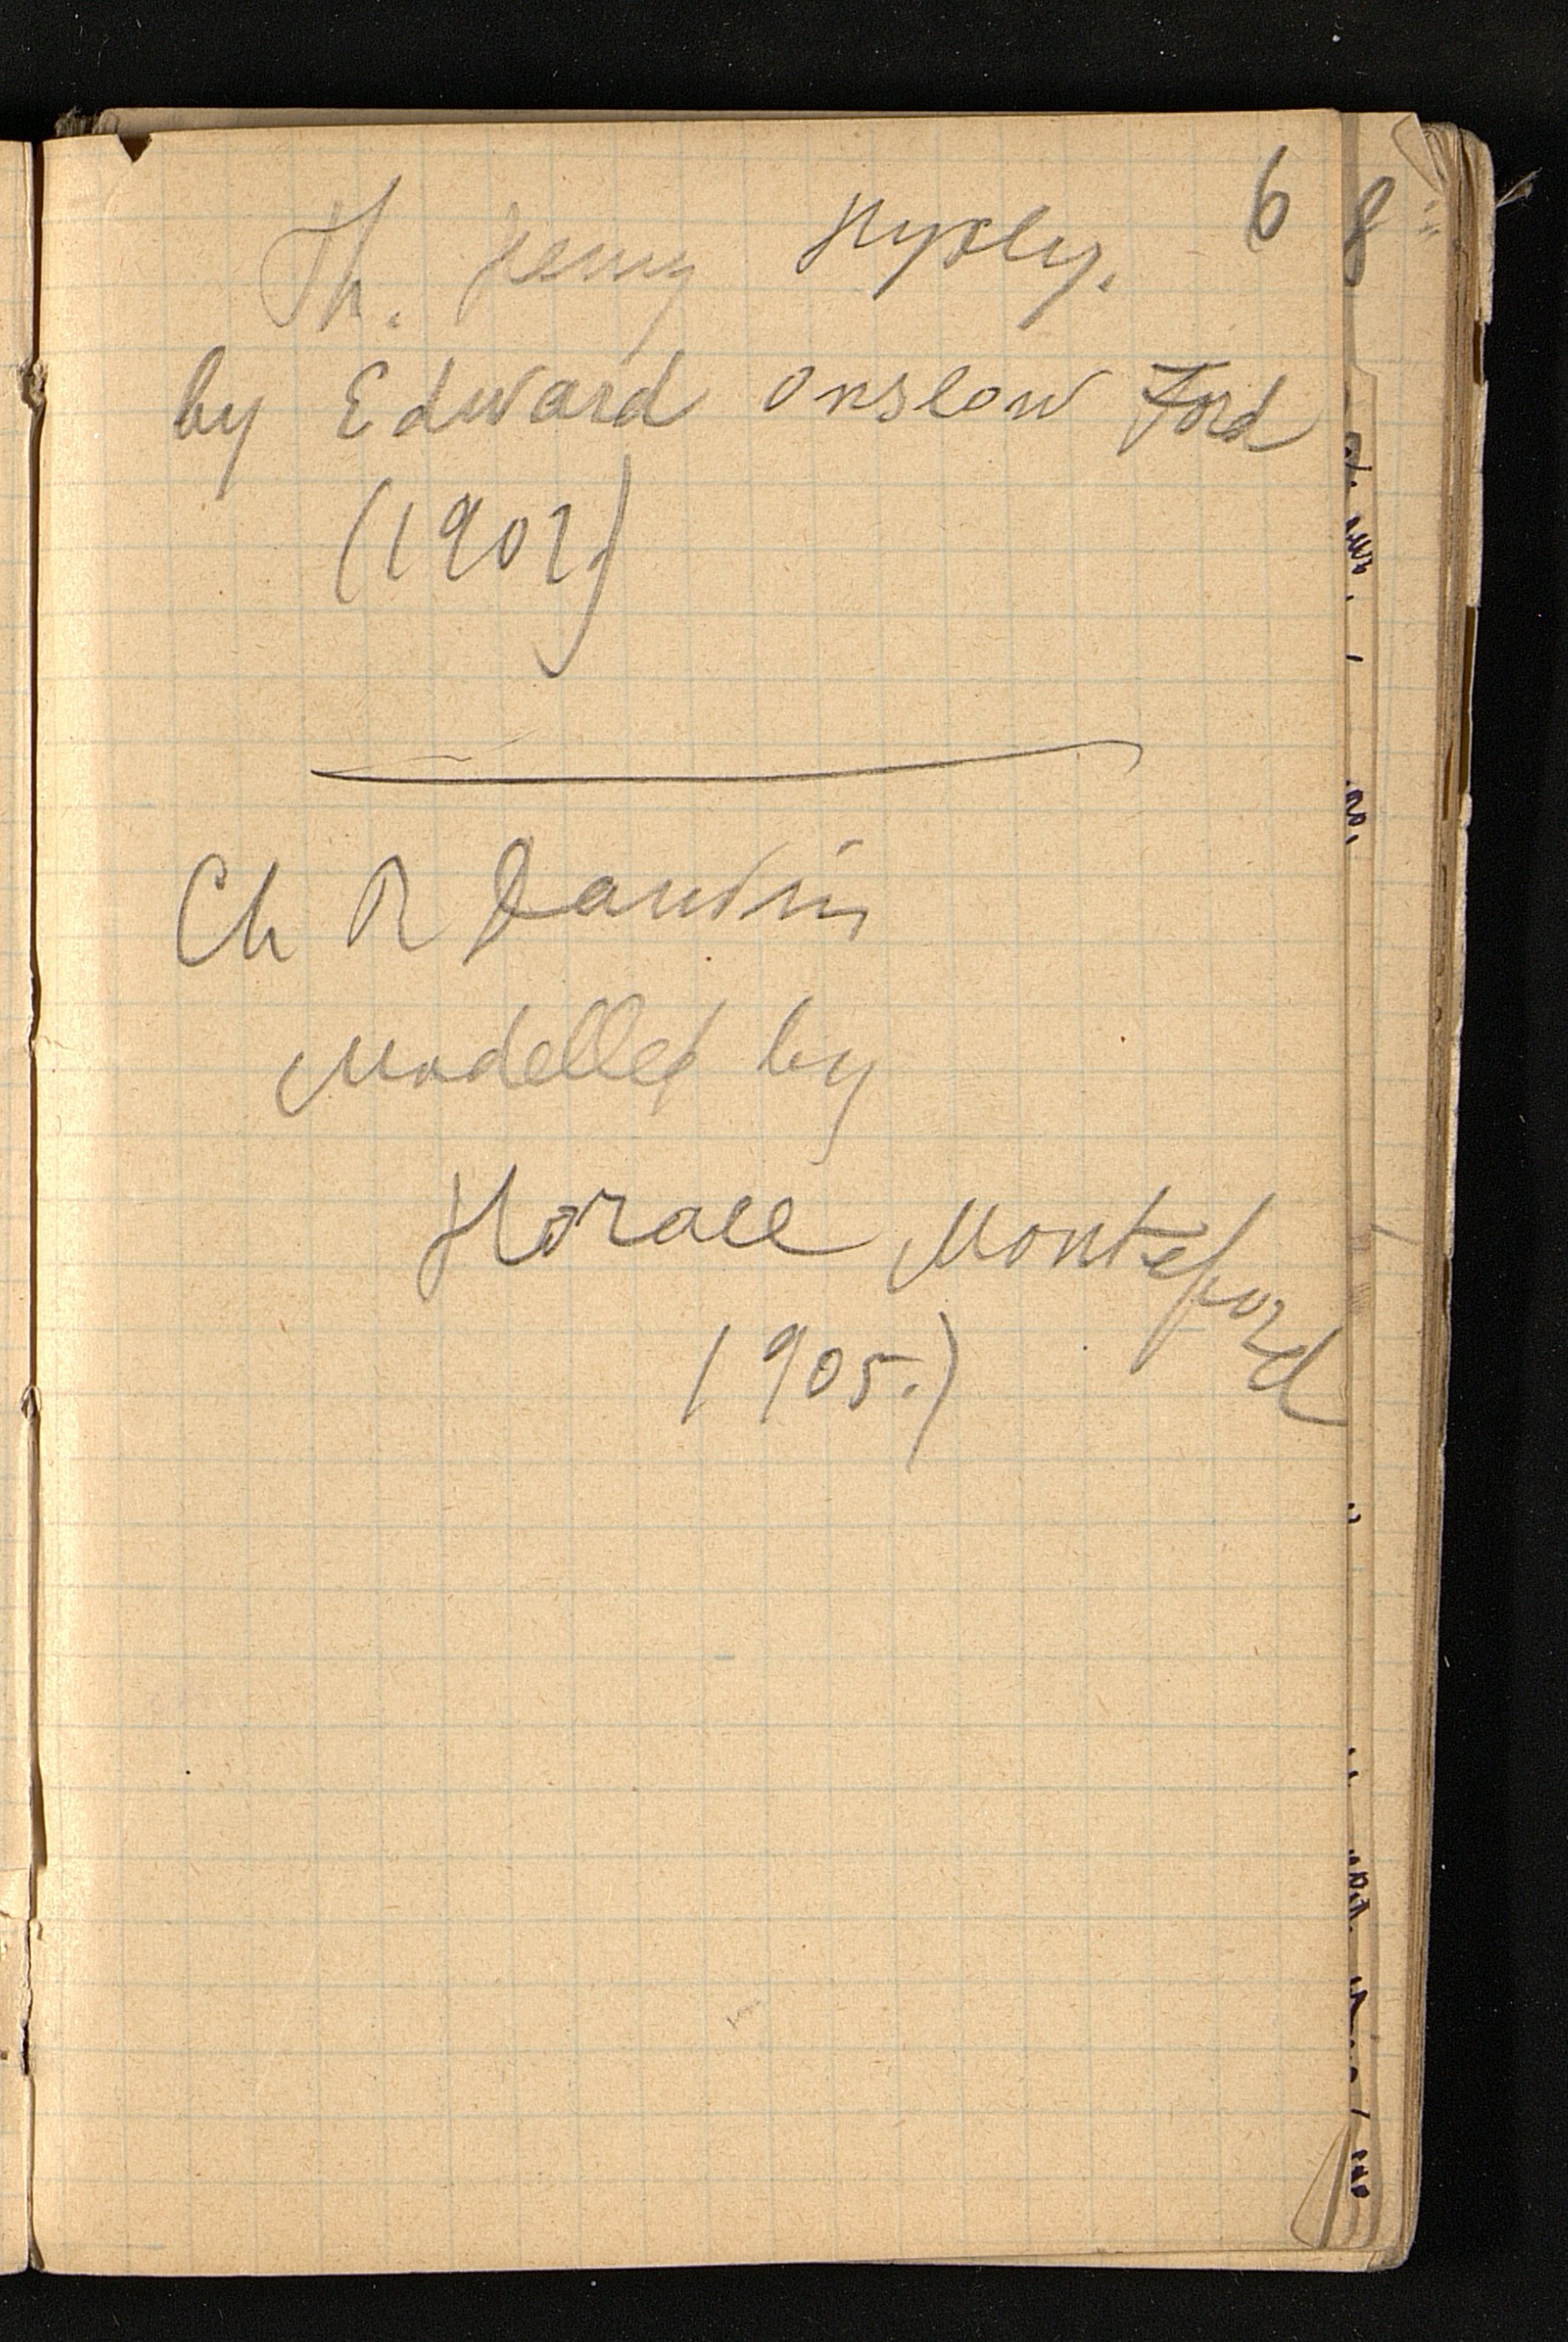 6 8
Th. Henry Huxley.
by Edward Onslow Ford
(1901)
Ch R Darwin
Modelled by
Horace Monteford
1905.)